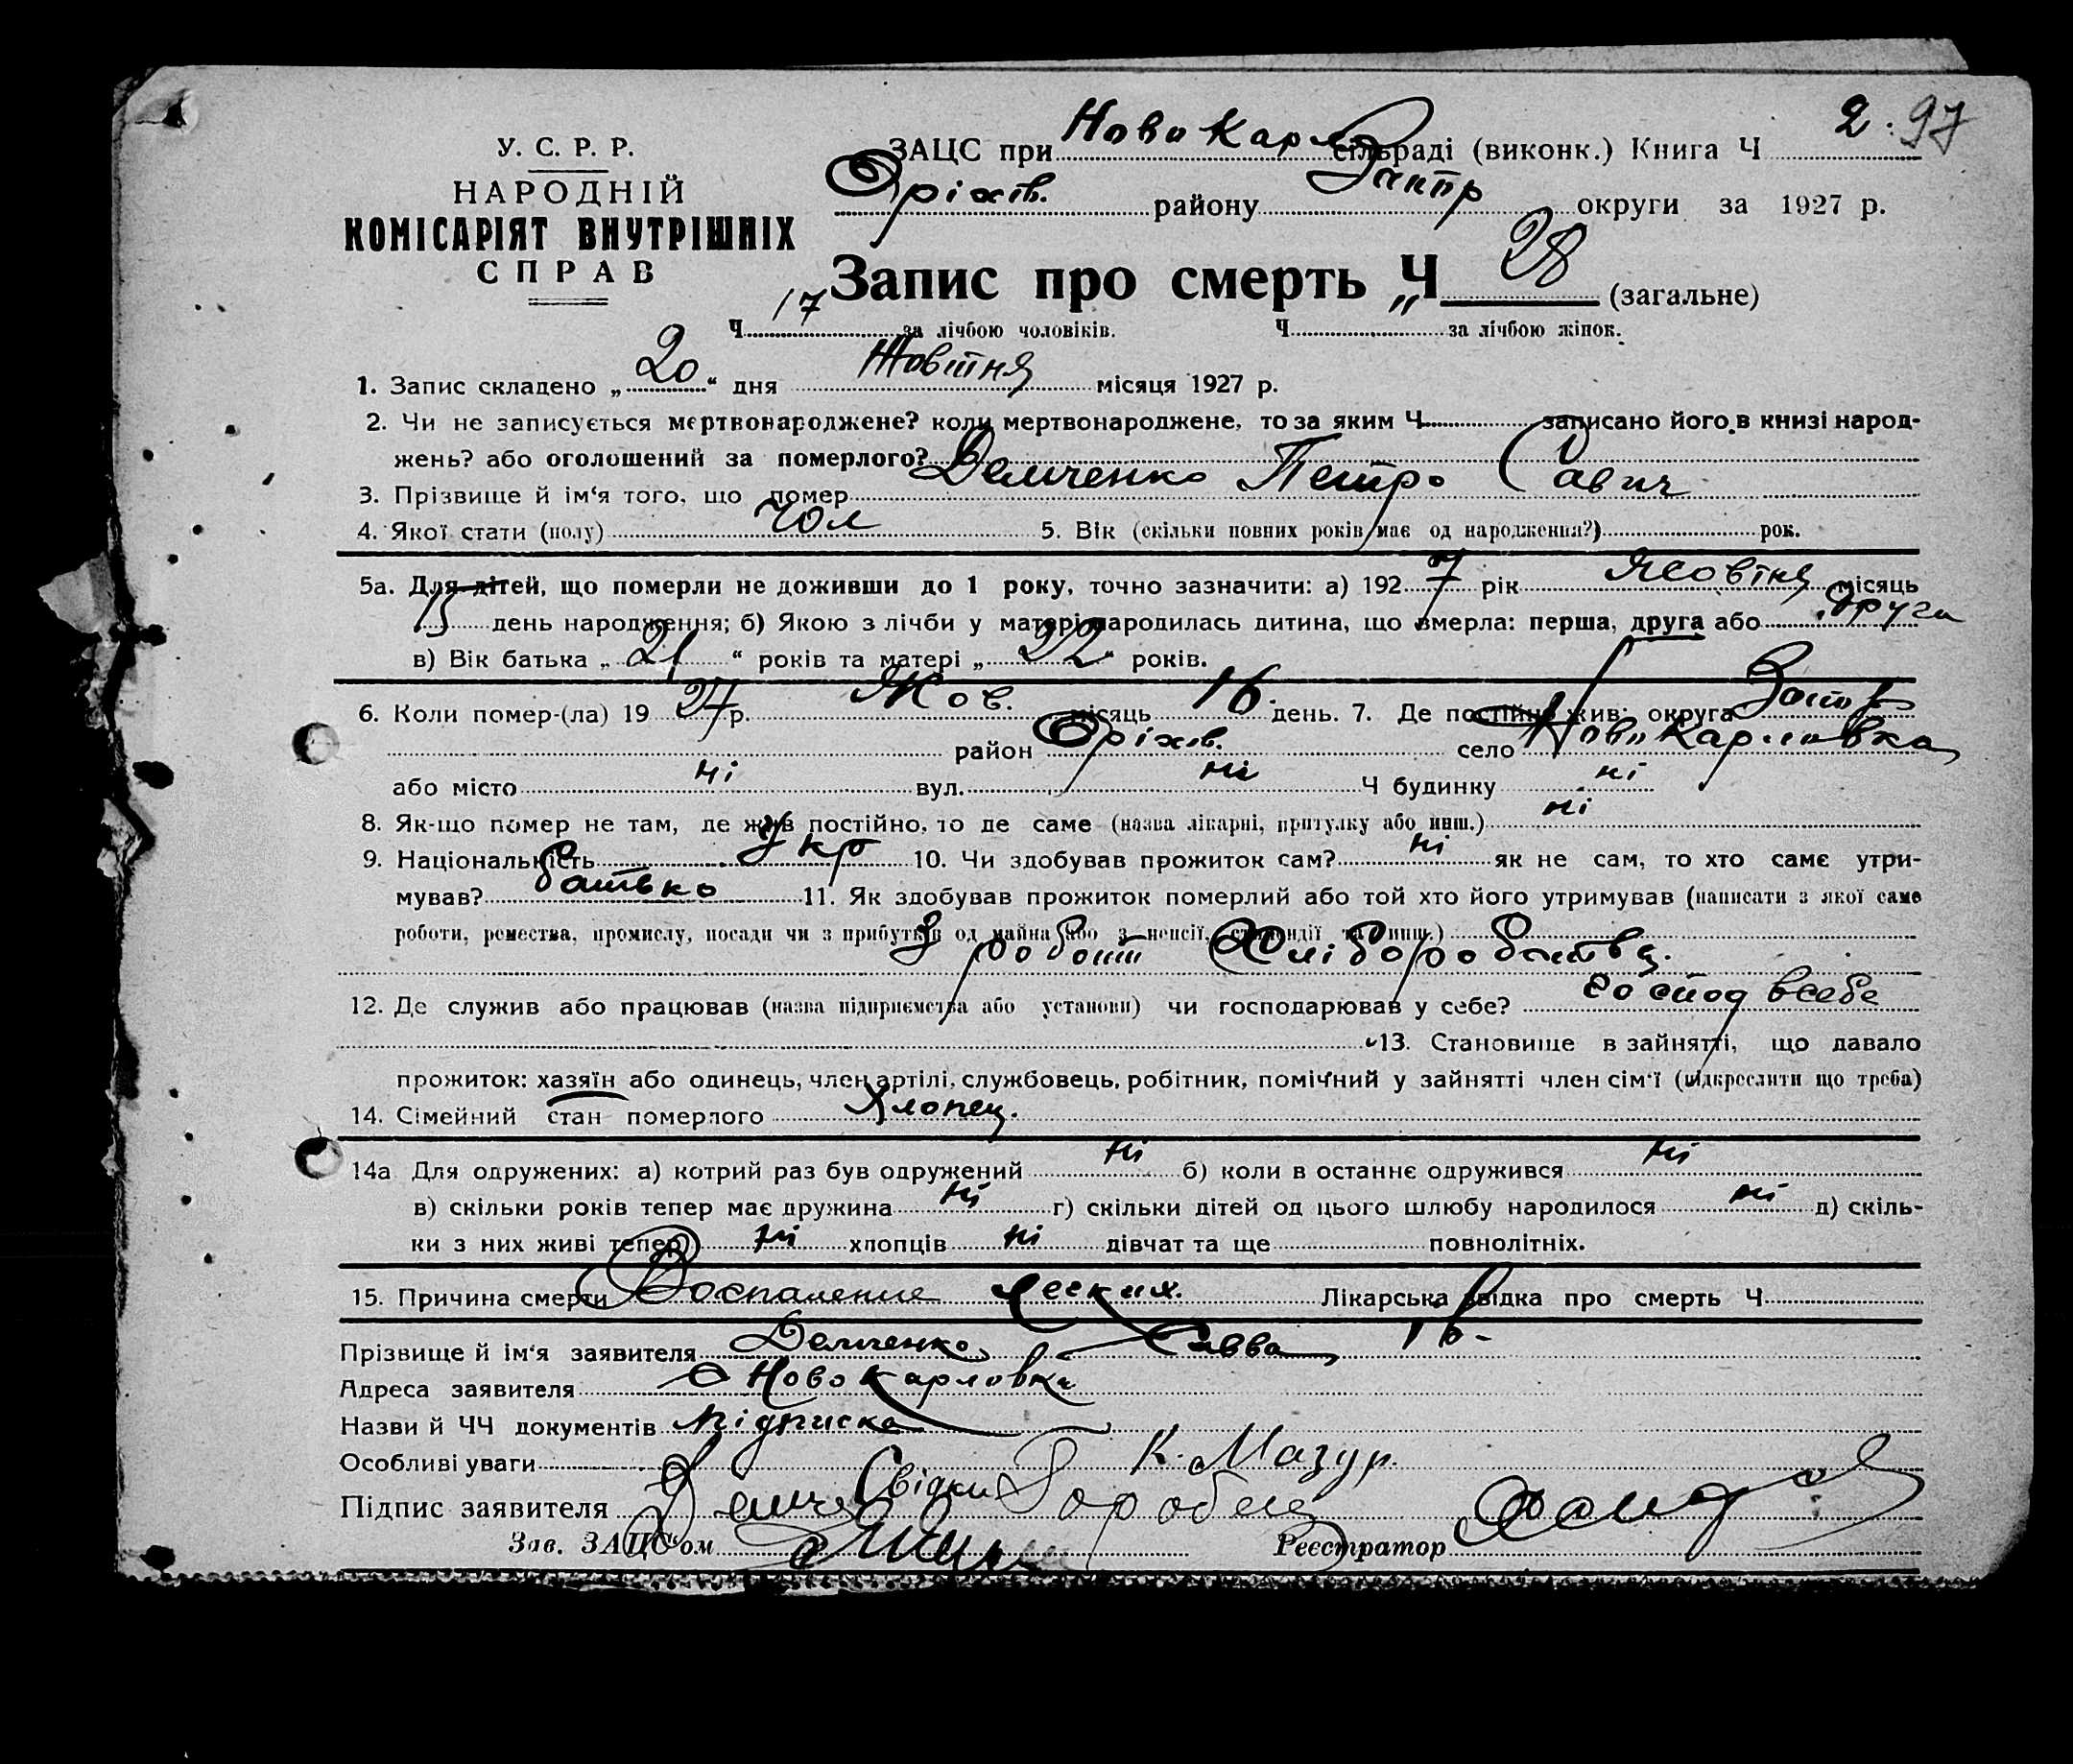 У. С. Р. Р.
НАРОДНІЙ
КОМІСАРІЯТ ВНУТРІШНІХ
СПРАВ
2. 97
ЗАЦС при Ново Кар сільраді (виконк.) Книга Ч
Оріхів. району Запр округи за 1927 р.
Запис про смерть Ч 28 (загальне)
Ч 17 за лічбою чоловіків. Ч за лічбою жінок.
1. Запис складено „ 20 “ дня Жовтня місяця 1927 р.
2. Чи не записується мертвонароджене? коли мертвонароджене, то за яким Ч записано його в книзі народ-
жень? або оголошений за померлого?
3. Прізвище й ім‘я того, що помер Демченко Петро Савич
4. Якої стати (полу) чол 5. Вік (скільки повних років має од народження?) рок.
5а. Для дітей, що померли не доживши до 1 року, точно зазначити: а) 192 7 рік Жовтня місяць
день народження; б) Якою з лічби у матері народилась дитина, що вмерла: перша, друга або друга
в) Вік батька „ 21 “ років та матері „ 22 “ років.
6. Коли помер-(ла) 19 27 р. Жов. місяць 16. день. 7. Де постійно жив: округа Запр
район Оріхів. село Ново Карловка
або місто ні вул. ні Ч будинку ні
8. Як-що помер не там, де жив постійно, то де саме (назва лікарні, притулку або инш.) ні
9. Національність Укр 10. Чи здобував прожиток сам? ні як не сам, то хто саме утри-
мував? батько 11. Як здобував прожиток померлий або той хто його утримував (написати з якої саме
роботи, ремества, промислу, посади чи з прибутків од майна або з пенсії, стипендії та инш.)
З робот Хліборобства.
12. Де служив або працював (назва підприємства або установи) чи господарював у себе? господ в себе
13. Становище в зайнятті, що давало
прожиток: хазяїн або одинець, член артілі, службовець, робітник, помічний у зайнятті член сім‘ї (підкреслити що треба)
14. Сімейний стан померлого Хлопец.
14а Для одружених: а) котрий раз був одружений ні б) коли в останнє одружився ні
в) скільки років тепер має дружина ні г) скільки дітей од цього шлюбу народилося ні д) скіль-
ки з них живі тепер ні хлопців ні дівчат та ще повнолітніх.
15. Причина смерти Воспаление легких. Лікарська звідка про смерть Ч
Прізвище й ім‘я заявителя Демченко Савва
Адреса заявителя с Ново Карловка
Назви й ЧЧ документів підписка
Особливі уваги К. Мазур.
Підпис заявителя Демче Свідки Горобец
Зав. ЗАЦС‘ом Реєстратор